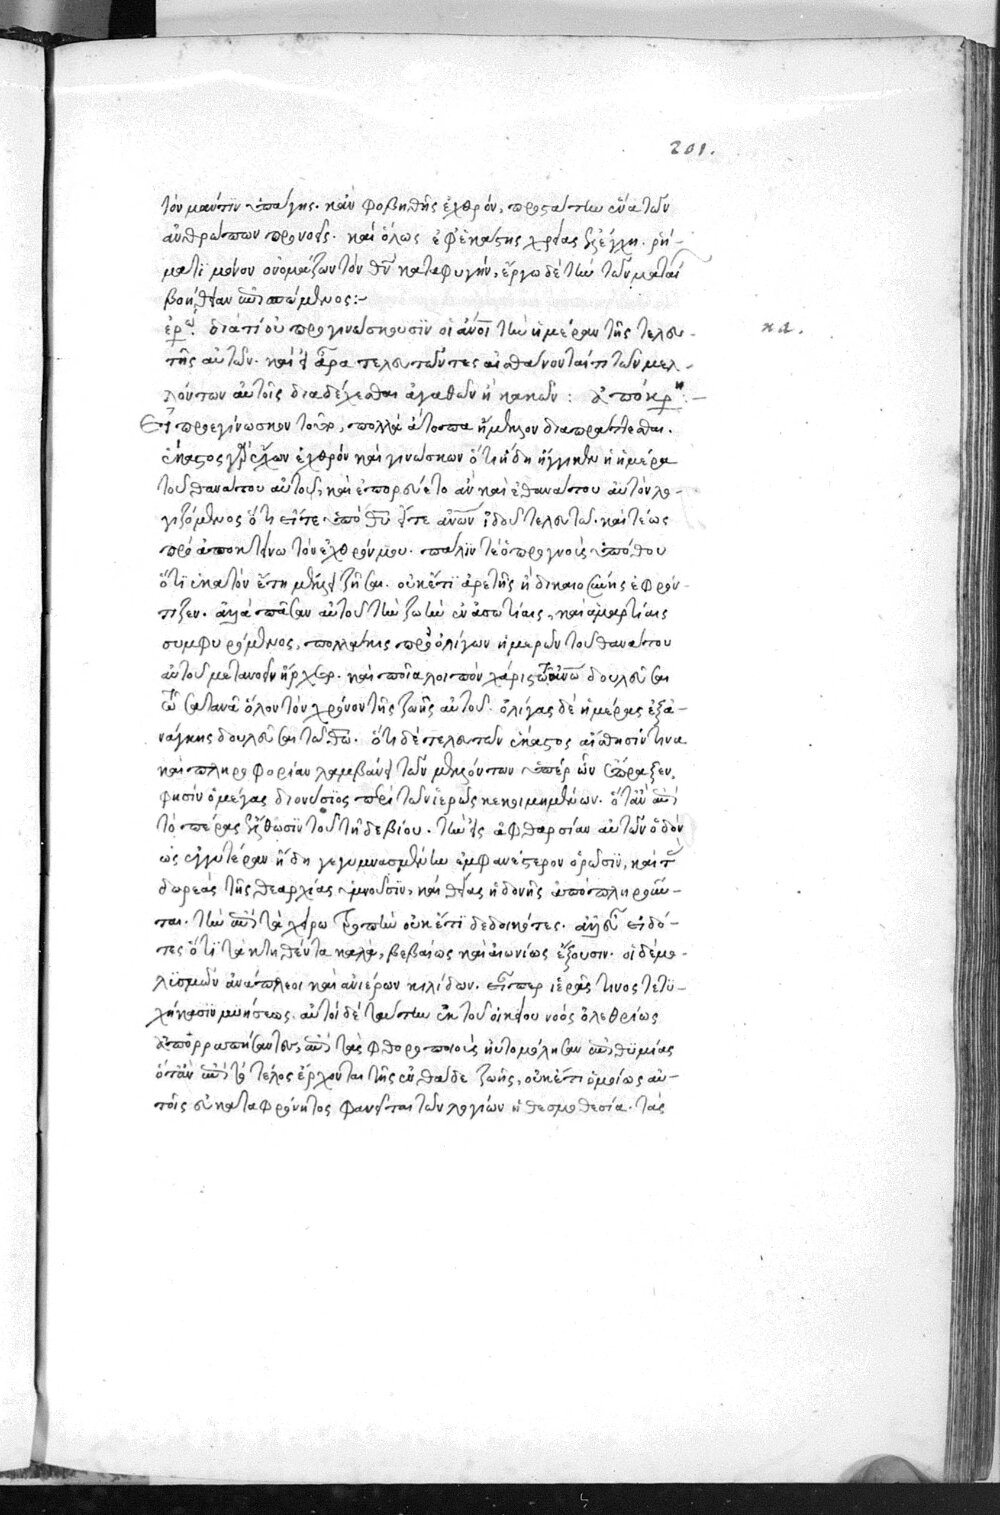 201.
τὸν μάντιν ὑπάγης. κἂν φοβηθῆς ἐχθρὸν, προστασίαν ἕνα τῶν
ἀνθρώπων προνοεῖς. καὶ ὅλως ἐφ' ἑκάστης χρείας ἐξελέγχη. ῥή-
ματι μόνον ὀνομάζων τὸν θν καταφυγὴν, ἔργω δὲ τὴν τῶν ματαί
βοήθειαν ἐπισπώμενος:-
κα.
ἐρ. διατί οὐ προγινώσκουσϊν οἱ ἀνοι τὴν ἡμέραν τῆς τελευ-
τῆς αὐτῶν. καὶ εἰ ἆρα τελευτῶντες αἰσθάνονταί τι τῶν μελ-
λόντων αὐτοῖς διαδέχεσθαι ἀγαθῶν ἢ κακῶν: ἀπόκρ.-
Εἰ προεγίνωσκον τοῦτο, πολλὰ ἄτοπα ἤμελλον διαπράττεσθαι.
ἕκαστος γὰρ ἔχων ἐχθρὸν καὶ γινώσκων ὅτι ἤδη ἤγγικεν ἡ ἡμέρα
τοῦ θανάτου αὐτοῦ, καὶ ἐπορεύετο ἂν καὶ ἐθανάτου αὐτὸν λο-
γιζόμενος ὅτι εἴτε ὑπὸ θυ εἴτε ανων ἰδοὺ τελευτῶ. καὶ τέως
προαποκτείνω τὸν ἐχθρόν μου. πάλϊν τὲ ὁ προγνοὺς ὑπὸ θυ
ὅτϊ ἑκατὸν ἔτη μέλλει ζῆσαι. οὐκέτϊ ἀρετῆς ἢ δικαιοσύνης ἐφρόν-
τιζεν. ἀλλὰ πᾶσαν αὐτοῦ τὴν ζωὴν ἐν ἀσωτίαις, καὶ ἁμαρτίαις
συμφυρόμενος, πολλάκις πρὸ ὀλίγων ἡμερῶν τοῦ θανάτου
αὐτοῦ μετανοεῖν ἤρχετο. καὶ ποία λοιπὸν χάρις τῶ ανω δουλεῦσαι
τῶ σατανᾶ ὅλον τὸν χρόνον τῆς ζωῆς αὐτοῦ. ὀλίγας δὲ ἡμέρας ἐξα-
νάγκης δουλεῦσαι τῶ θω. ὅτι δὲ τελευτῶν ἕκαστος αἴσθησίν τινα
καὶ πληροφορίαν λαμβάνει τῶν μελλόντων ὑπὲρ ὧν ἔπραξεν,
φησὶν ὁ μέγας διονύσϊος περὶ τῶν ἱερῶς κεκοιμημένων. ὅταν ἐπὶ
τὸ πέρας ἔλθωσϊν τοῦ τῆδε βίου. τὴν εἰς ἀφθαρσίαν αὐτῶν ὁδὸν
ὡς ἐγγυτέραν ἤδη γεγυμνασμένην ἐμφανέστερον ὁρῶσϊν, καὶ τὰς
δωρεὰς τῆς θεαρχίας ὑμνοῦσϊν, καὶ θείας ἡδονῆς ἀποπληροῦν-
ται. τὴν ἐπὶ τὰ χείρω τροπὴν οὐκέτϊ δεδοικότες. ἀλλ' εὖ εἰδό-
τες ὅτϊ τὰ κτηθέντα καλὰ, βεβαίως καὶ αἰωνίως ἕξουσιν. οἱ δὲ μο-
λϋσμῶν ἀνάπλεοι καὶ ἀνιέρων κηλίδων. εἴπερ ἱερᾶς τινος τετϋ-
χήκασϊν μυήσεως, αὐτοὶ δὲ ταύτην ἐκ τοῦ οἰκείου νοὸς ὀλεθρίως
ἀπορραπήσαντες, ἐπὶ τὰς φθοροποιοὺς ηὐτομόλησαν ἐπιθϋμίας
ὁπὰν ἐπὶ τὸ τέλος ἔρχονται τῆς ἐνθάδε ζωῆς, οὐκέτι ὁμοίως αὐ-
τοῖς εὐκαταφρόνητος φανεῖται τῶν λογίων ἡ θεσμοθεσία. τὰς